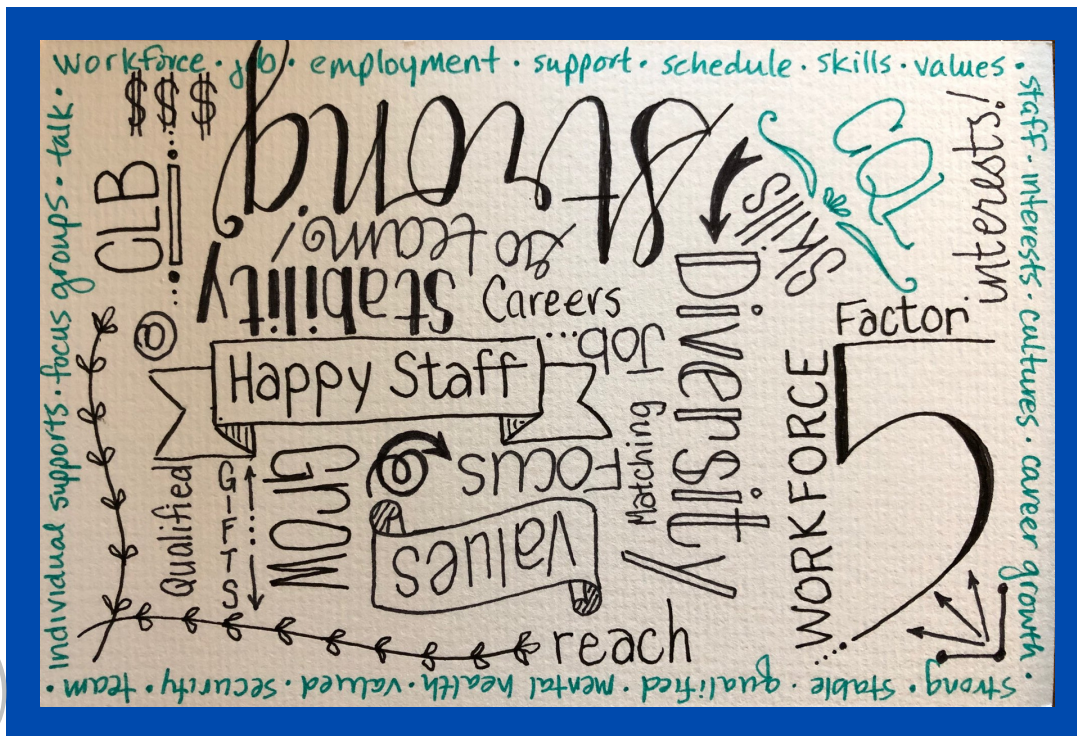 workforce · job · employment · support · schedule · skills · values ·
staff · interests · cultures · career growth ·
strong · stable · qualified · mental health · valued · security · team ·
individual supports · focus groups · talk ·
$$$
CLB
strong
go team!
Stability
Careers
Skills
CQL
interests!
Diversity
Factor
5
WORKFORCE
@
Happy Staff
Job...
Matching
Qualified
GIFTS
Grow
Focus
Values
reach